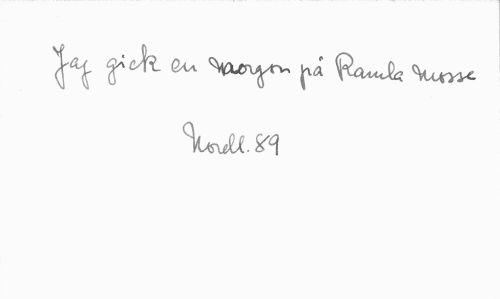 Jag gick en morgon på Ramla mosse
Nordl. 89